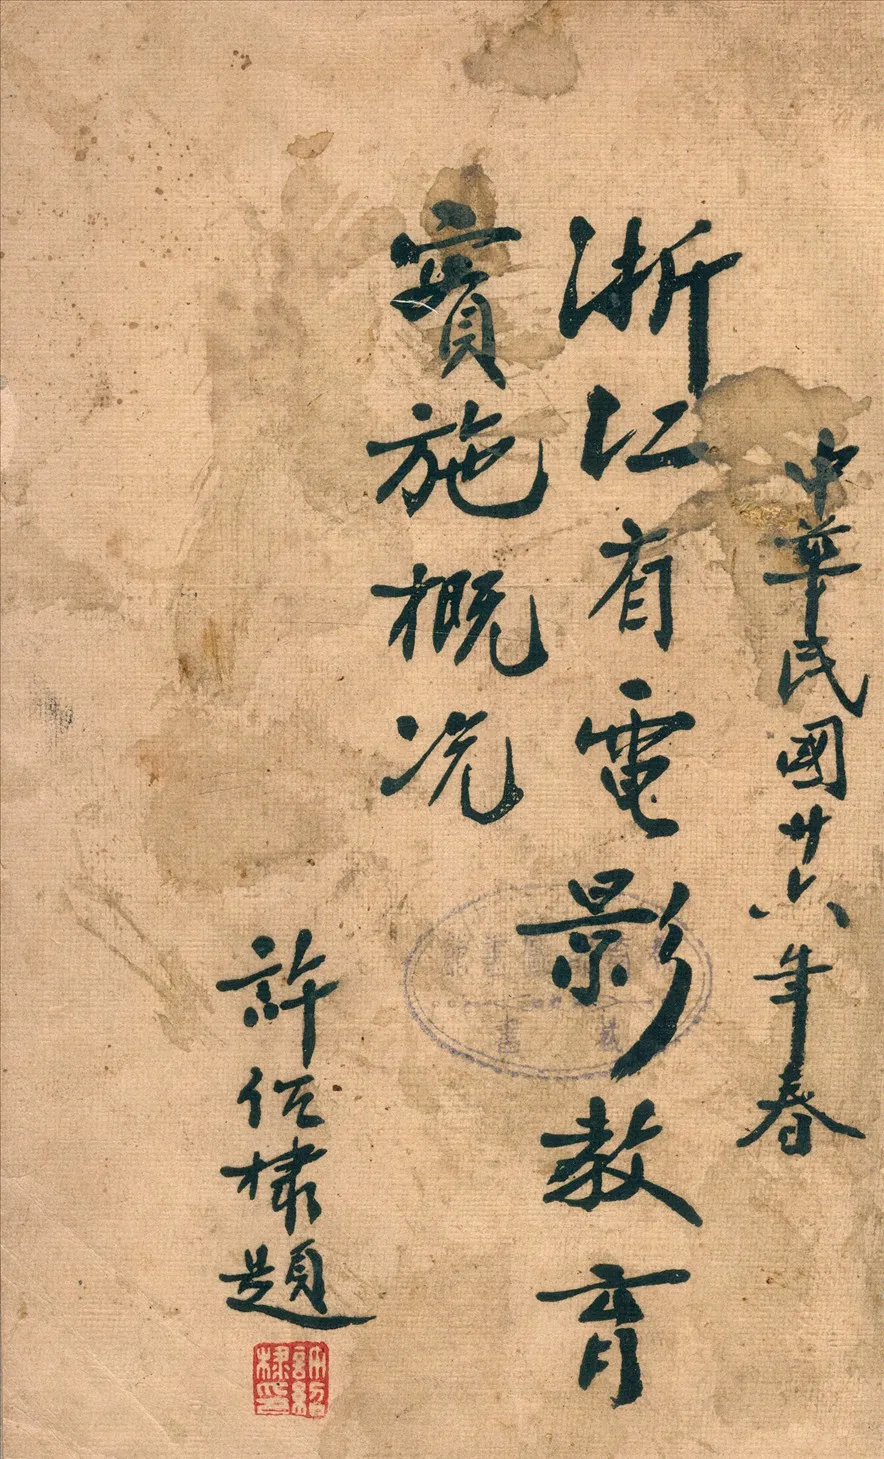 中華民國廿六年春
浙江省電影教育
實施概況
許紹棣題
許紹棣印